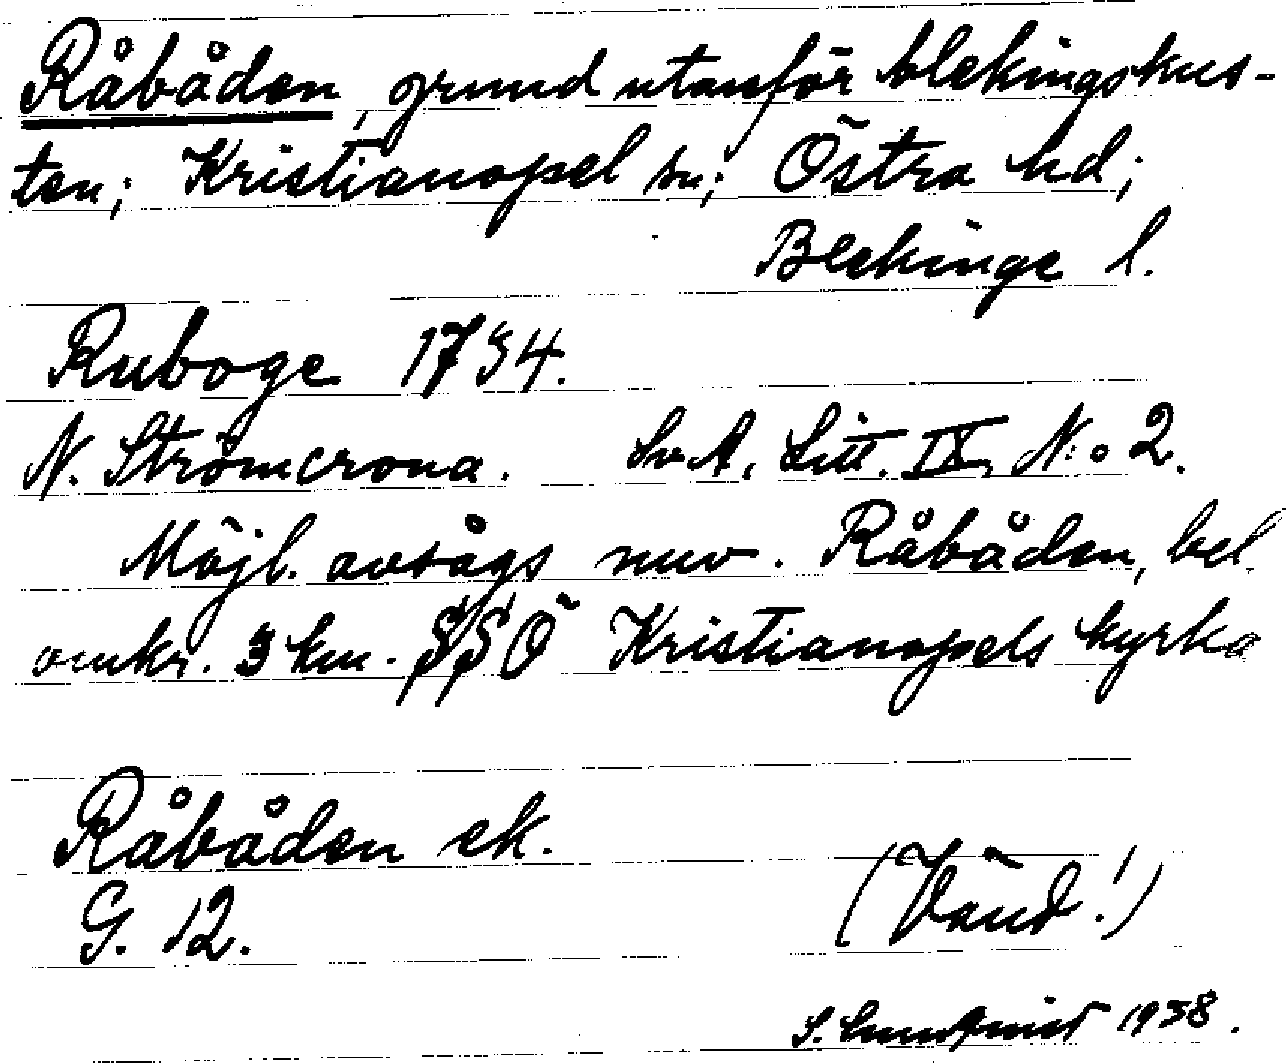 Råbåden, grund utanför blekingskus-
ten; Kristianopel sn; Östra hd;
Blekinge l.
Ruboge 1734.
N. Strömcrona. Sv.A, Litt. IX, N:o 2.
Möjl. avsågs nuv. Råbåden, bel.
omkr. 3 km. SSÖ Kristianopels kyrka
Råbåden ek.
G. 12.
(Vänd!)
S. 1938.